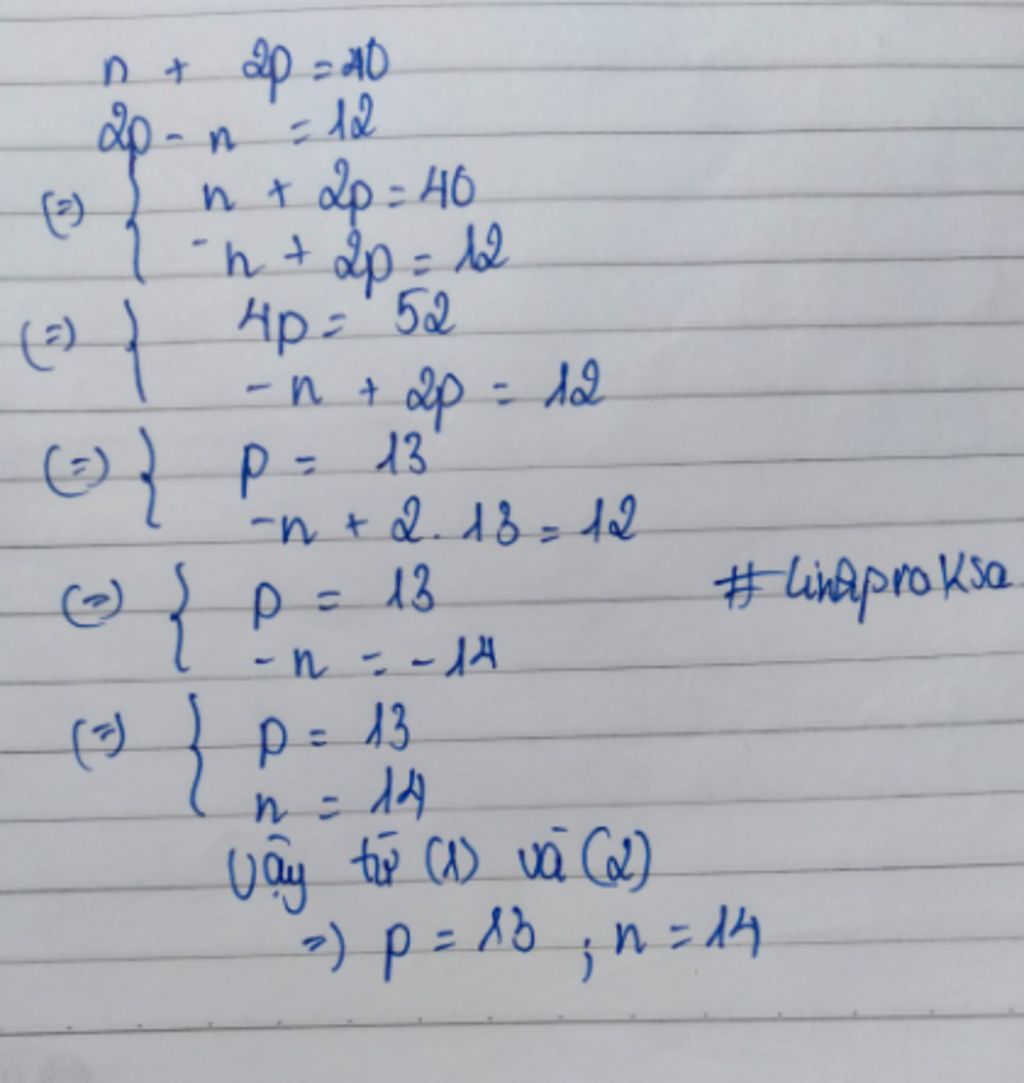 n + 2p = 40
2p - n = 12
(=) { n + 2p = 40
-n + 2p = 12
(=) } 4p = 52
-n + 2p = 12
(=) } p = 13
-n + 2. 13 = 12
(=) { p = 13
#linaproksa
-n = -14
(=) { p = 13
n = 14
Vậy từ (1) và (2)
=) p = 13 ; n = 14